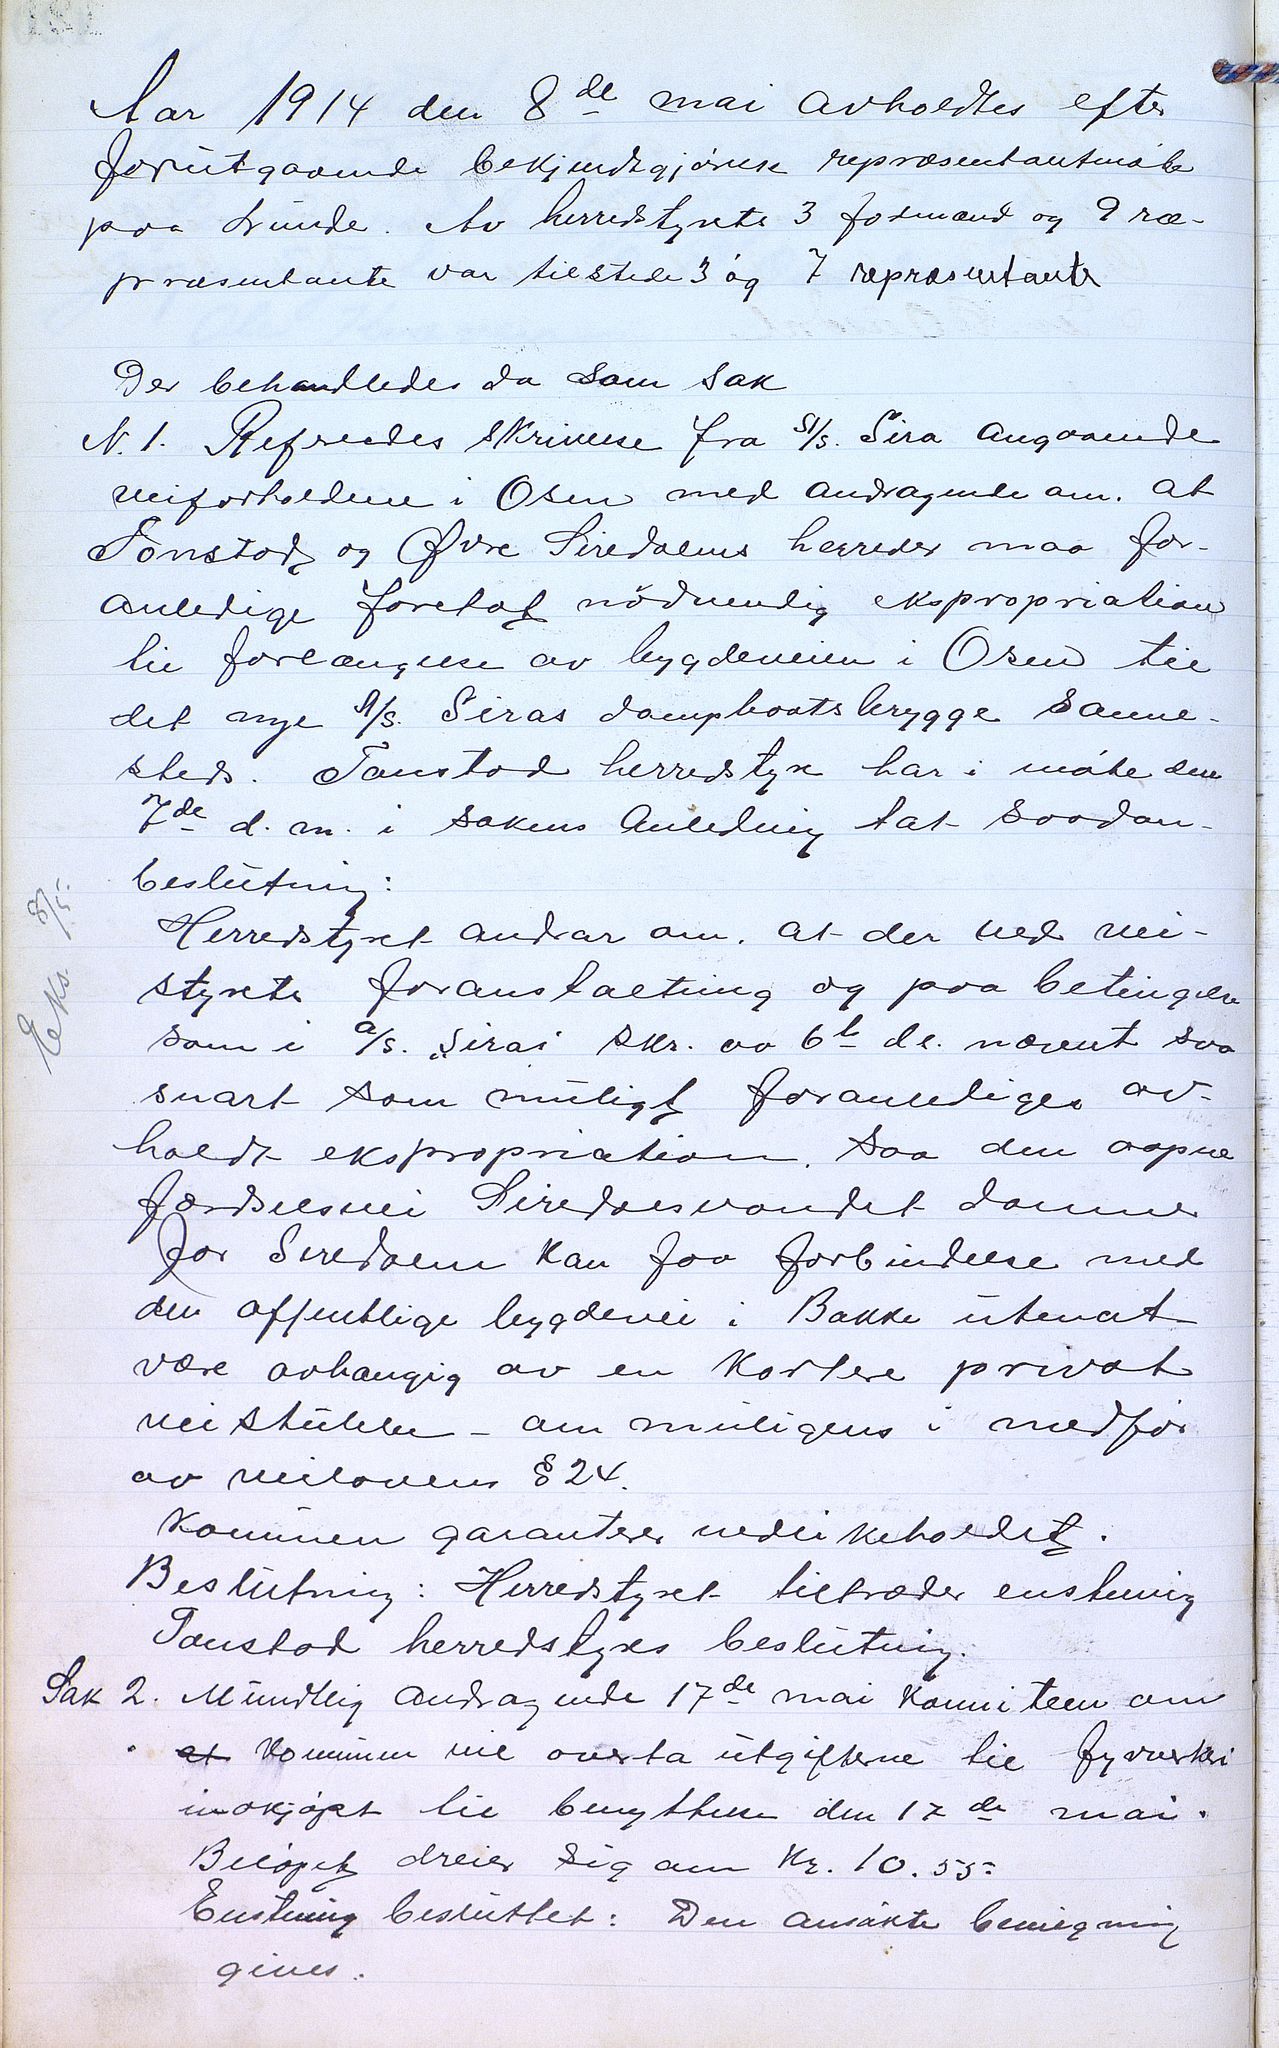 Aar 1914 den 8de mai avholdtes efter
forutgaaende bekjendtgjørelse repræsentantmøte
paa Lunde. Av herredstyrets 3 formænd og 9 ræ-
præsentante var tilstede 3 og 7 repræsentanter
Der behandledes da som sak
N. 1. Refereedes skrivelse fra A/S. Sira angaaende
veiforholdene i Osen med andragende om. at
Tonstad og Øvre Siredalens herreder maa for-
anledige foretat nödvendig ekspropriation
til forlængelse av bygdeveien i Osen til
det nye A/S. Siras dampbaatsbrygge samme-
steds. Tonstad herredstyre har i møte den
7de d. m. i sakens Anledning tat saadan
beslutning:
Herredstyret andrar om. at der ved vei-
styrets foranstaltning og paa betingelse
som i a/s. "Siras skr. av 6te ds. nævnt saa
snart som muligt foranlediges av-
holdt ekspropriation. saa den aapne
færdselsvei Siredalsvandet danner
for Siredalen kan faa forbindelse med
den offentlige bygdevei i Bakke utenat
være avhangig av en kortere privat
veistubbe - om muligens i medfør
av veilovens § 24.
Kommunen garanterer vedlikeholdet.
Beslutning: Herredstyret tiltræder enstemig
Tonstad herredstyres beslutning.
Sak 2. Mundtlig andragende 17de mai komiteen om
at kommunen vil overta utgifterne til fyrverkeri
indkjøpt til benyttelse den 17de mai.
Beløpet dreier sig om Kr. 10.55-
Enstemig besluttet: Den ansøkte bevilgning
gives.
Eks 8/5.